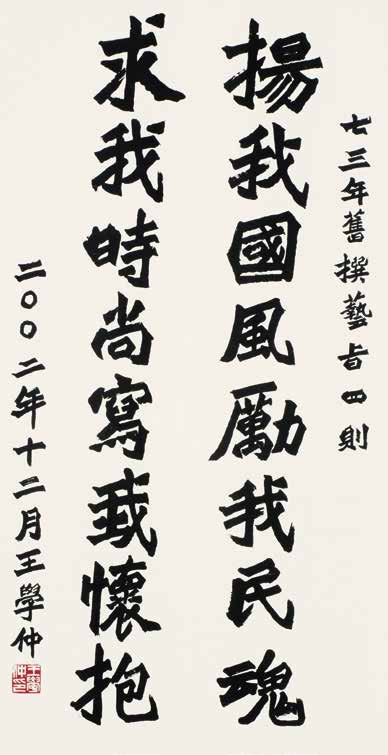 七三年舊撰藝旨四則
揚我國風勵我民魂
求我時尚寫我懷抱
二〇〇二年十二月王學仲
王學仲印